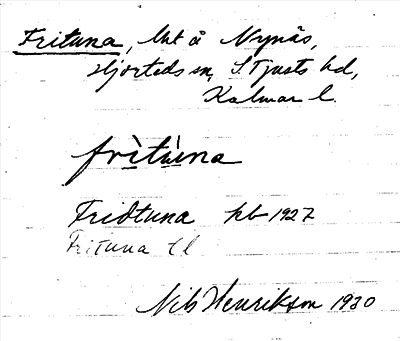 Frituna, lht å Nynäs,
Hjorteds sn, S. Tjusts hd,
Kalmar l.
frìtùna
Fridtuna kb 1927
Frituna tl
Nils Henrikson 1930